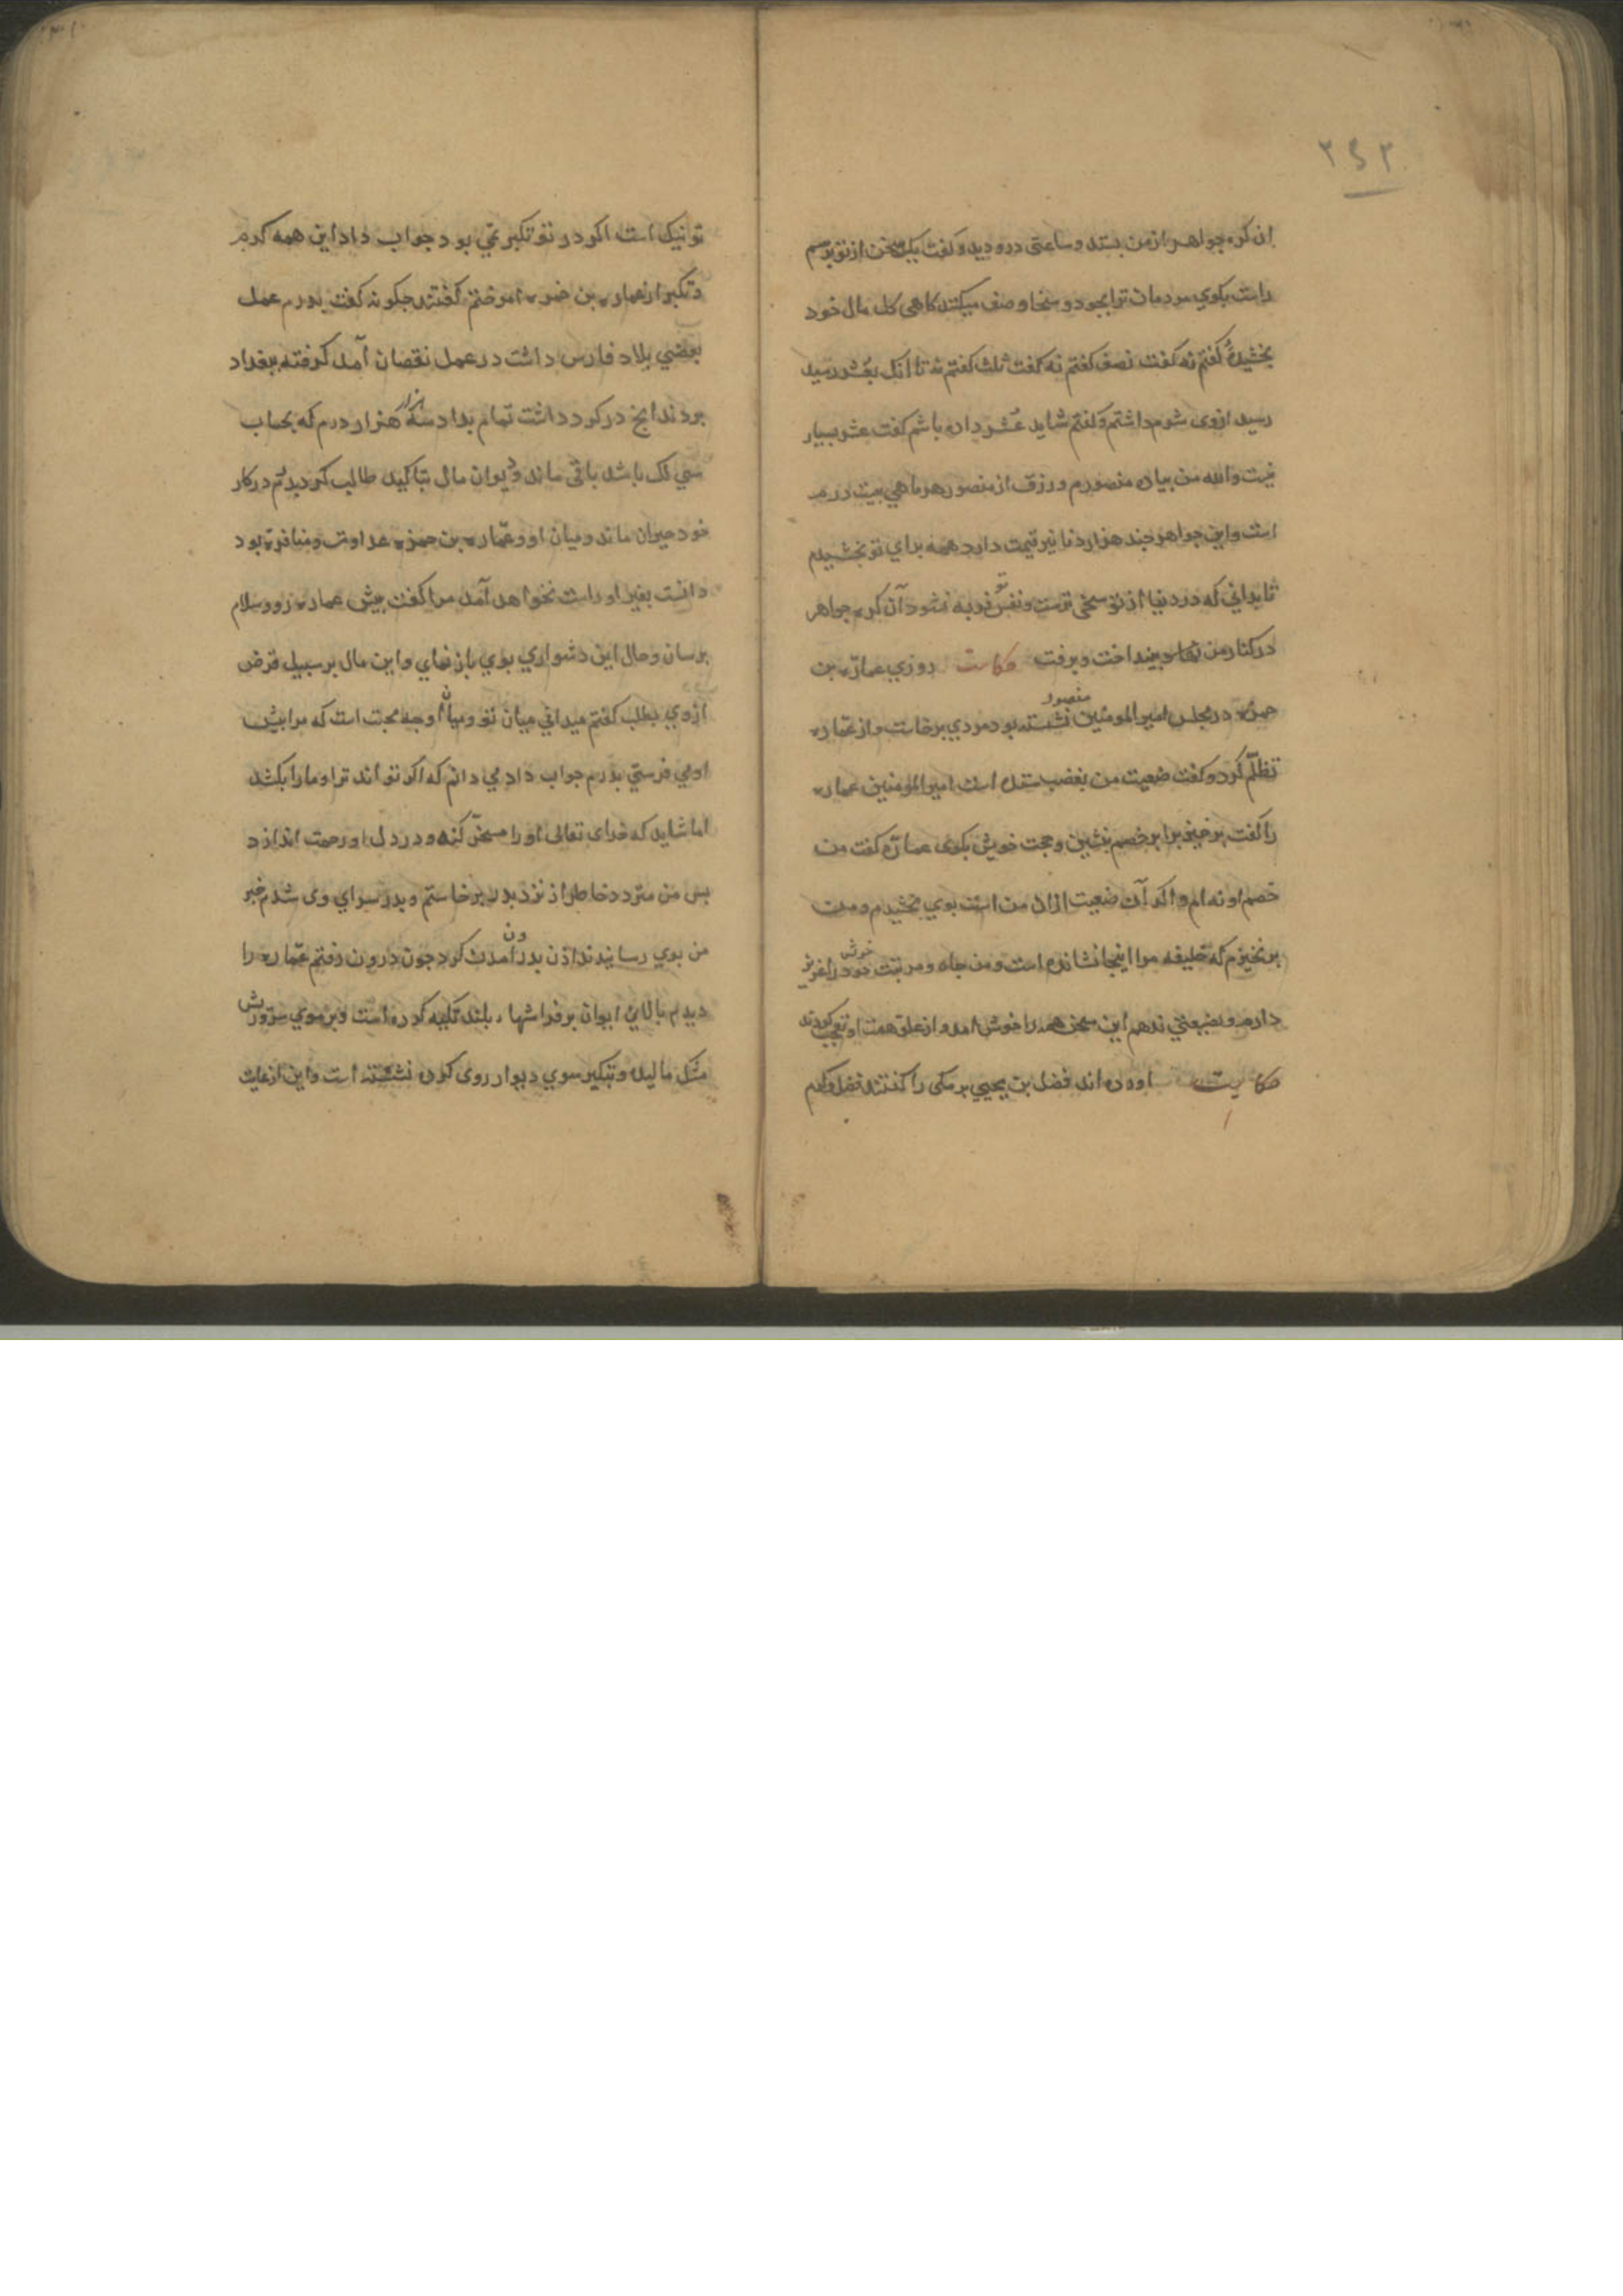 ۲۶۲
ان کره جواهر از من بستد و ساعتی درو دید و کفت یک سخن از تو پرسم
راست بکوی مردمان ترا بجود و سخا وصف میکنند کاهی کل مال خود
بخشیدهٔ کفتم نه کفت نصف کفتم نه کفت ثلث کفتم نه تا انک بعشر رسید
رسید ازوی شرم داشتم و کفتم شاید عشر داده باشم کفت عشر بسیار
نیست والله من پیاده منصورم و رزق از منصور هر ماهی بیست درم
است و این جواهر چند هزار دنانیر قیمت دارد همه برای تو بخشیدم
تا بدانی که در دنیا از تو سخی ترست و نفس تو فربه نشود آن کره جواهر
در کنار من بینداخت و برفت حکایت روزی عماره بن
حمزه در مجلس امیر المومنین منصور نشسته بود مردی برخاست و از عماره
تظلم کرد و کفت ضیعت من بغصب ستده است امیر المومنین عماره
را کفت برخیز برابر خصم بنشین و حجت خویش بکوی عماره کفت من
خصم او نه ام و اکر آن ضیعت ازان من است بوی بخشیدم و من
برنخیزم که خلیفه مرا اینجا نشانده است و من جاه و مرتبت خود را عزیز
دارم و بضیعتی ندهم این سخن همه را خوش امد و از علو همت او تعجب کردند
حکایت اورده اند فضل بن یحیی برمکی را کفتند فضل و کرم
تو نیک است اکر در تو تکبر نمی بود جواب داد این همه کرم
و تکبر از عماره بن حمزه اموختم کفتند چکونه کفت پدرم عمل
بعضی بلاد فارس داشت در عمل نقصان آمد کرفته ببغداد
بردند انج در کرد داشت تمام بداد سه هزار هزار درم که بحساب
سی لک باشد باقی ماند و دیوان مال بتاکید طالب کردید پدرم در کار
خود حیران ماند و میان او و عماره بن حمزه عداوت و منافرت بود
دانست بغیر او راست نخواهد آمد مرا کفت پیش عماره رو و سلام
برسان و حال این دشواری بوی باز نمای و این مال بر سبیل قرض
ازوی بطلب کفتم میدانی میان تو و میان او چه محبت است که مرا پیش
او می فرستی پدرم جواب داد می دانم که اکر تواند ترا و ما را بکشد
اما شاید که خدای تعالی او را مسخر کند و در دل او رحمت اندازد
پس من متردد خاطر از نزد پدر برخاستم و بدر سرای وی شدم خبر
من بوی رسانیدند اذن بدر آمدن کرد چون درون رفتم عماره را
دیدم بالای ایوان بر فراشها بلند تکیه کرده است و بر موی سر و ریش
مشک مالیده و بتکبر سوی دیوار روی کرده نشسته است و این از غایت